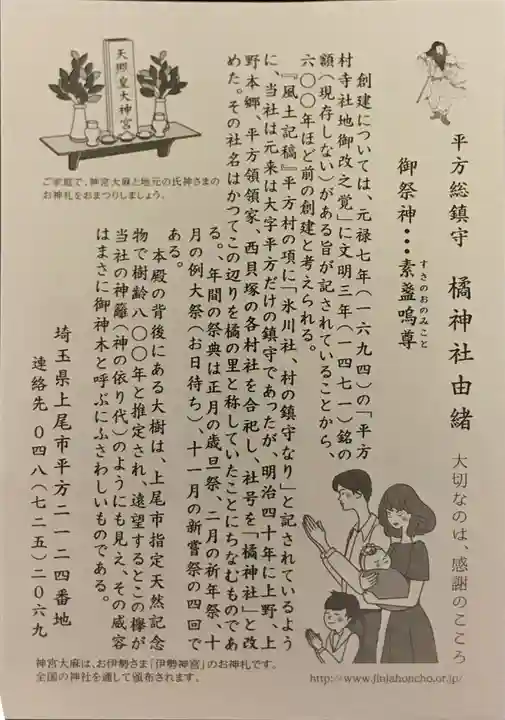 平方総鎮守 橘神社由緒
御祭神・・・素盞嗚尊
すさのおのみこと
大切なのは、感謝のこころ
創建については、元禄七年(一六九四)の「平方
村寺社地御改之覚」に文明三年(一四七一)銘の
額(現存しない)がある旨が記されていることから、
六〇〇年ほど前の創建と考えられる。
『風土記稿』平方村の項に「氷川社、村の鎮守なり」と記されているよう
に、当社は元来は大字平方だけの鎮守であったが、明治四十年に上野、上
野本郷、平方領領家、西貝塚の各村社を合祀し、社号を「橘神社」と改
めた。その社名はかつてこの辺りを橘の里と称していたことにちなむものであ
る。、年間の祭典は正月の歳旦祭、二月の祈年祭、十
月の例大祭(お日待ち)、十一月の新嘗祭の四回で
ある。
本殿の背後にある大樹は、上尾市指定天然記念
物で樹齢八〇〇年と推定され、遠望するとこの欅が
当社の神籬(神の依り代)のようにも見え、その威容
はまさに御神木と呼ぶにふさわしいものである。
埼玉県上尾市平方二一二四番地
連絡先 〇四八(七二五)二〇六九
天照皇大神宮
ご家庭で、神宮大麻と地元の氏神さまの
お神札をおまつりしましょう。
神宮大麻は、お伊勢さま「伊勢神宮」のお神札です。
全国の神社を通して頒布されます。
http://www.jinjahoncho.or.jp/